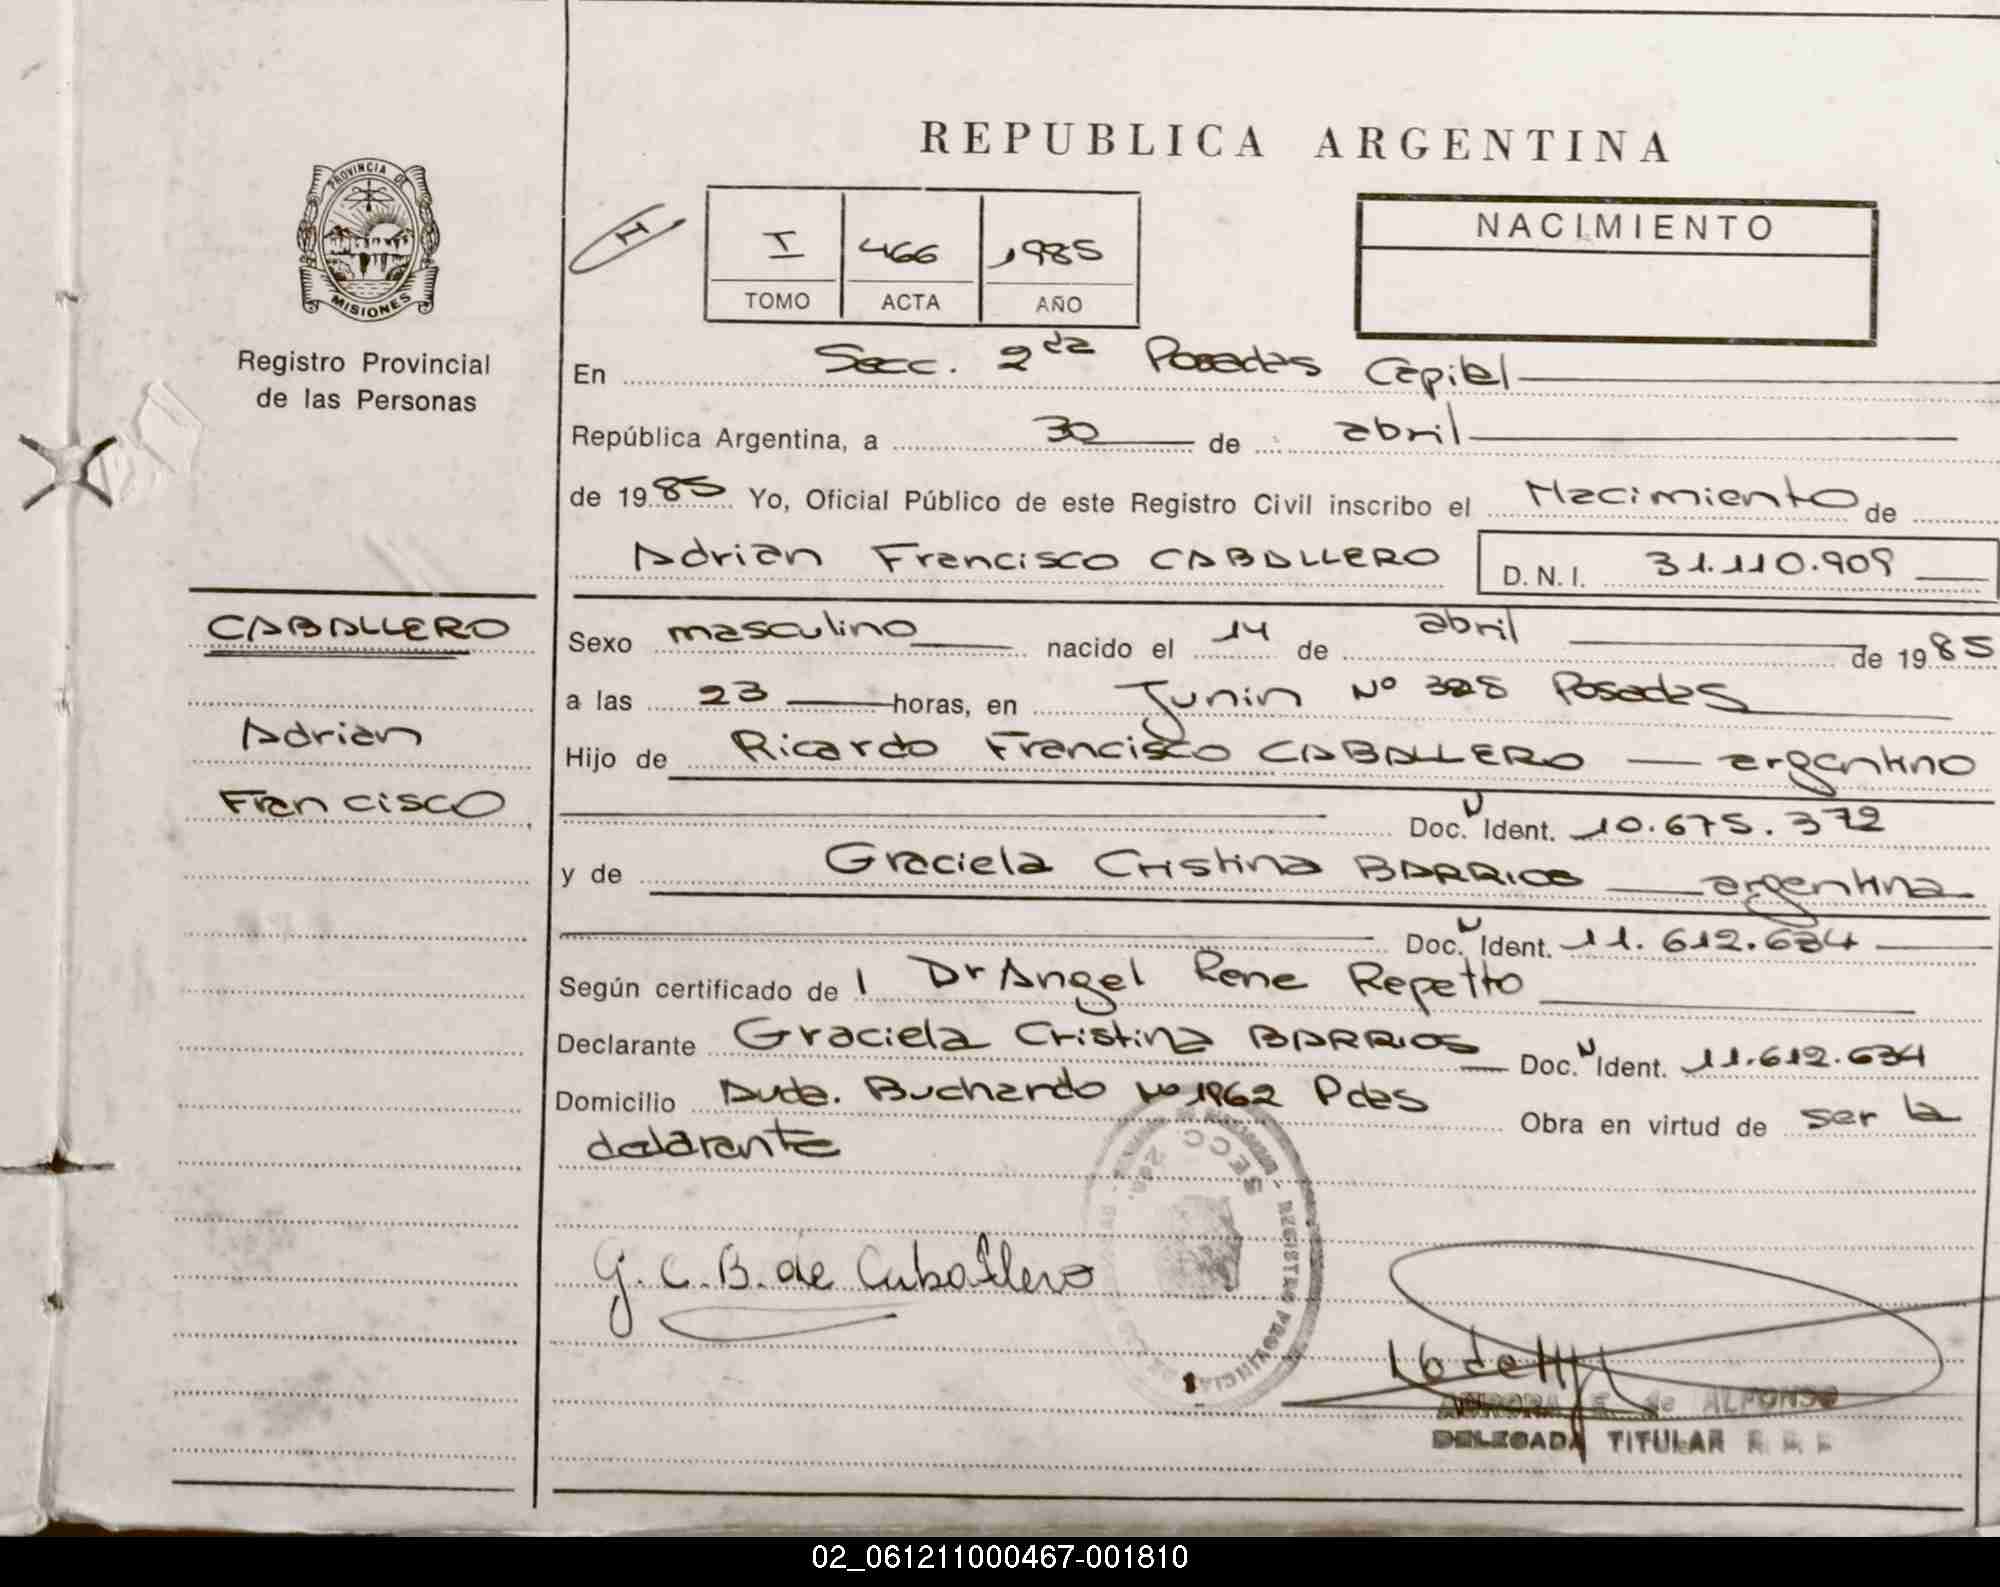 PROVINCIA DE
MISIONES
Registro Provincial
de las Personas
CABALLERO
Adrian
Francisco
REPUBLICA ARGENTINA
I 466 1985
TOMO ACTA AÑO
NACIMIENTO
En Secc. 2da Posadas Capital
República Argentina, a 30 de abril
de 1985 Yo, Oficial Público de este Registro Civil inscribo el Nacimiento de
Adrian Francisco CABALLERO D.N.I. 31.110.909
Sexo masculino nacido el 14 de abril de 1985
a las 23 horas, en Junin Nº Posadas
Hijo de Ricardo Francisco CABALLERO argentino
Doc. N Ident. 10.675.372
y de Graciela Cristina BARRIOS argentina
Doc. N Ident. 11.612.634
Según certificado de l Dr Angel Rene Repetto
Declarante Graciela Cristina BARRIOS Doc. N Ident. 11.612.634
Domicilio Avda. Buchardo Nº 1962 Pdas Obra en virtud de ser la
declarante
SECC 2da.
REGISTRO PROVINCIAL
G. C. B. de Caballero
AURORA E. de ALFONSO
DELEGADA TITULAR R. P. P.
02_061211000467-001810